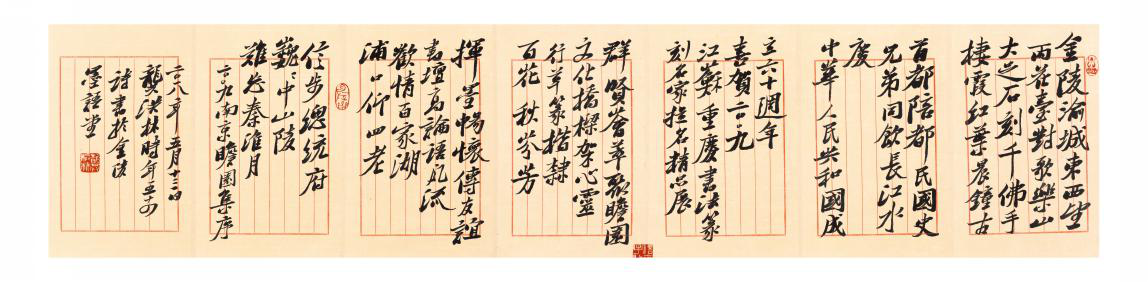 金陵渝城東西望
雨花臺對歌樂山
大足石刻千佛手
棲霞紅葉晨鐘古
首都陪都民國史
兄弟同飲長江水
慶
中華人民共和國成
立六十週年
喜賀二〇〇九
江蘇重慶書法篆
刻名家提名精品展
群賢薈萃聚瞻園
文化橋樑架心靈
行草篆楷隸
百花秋芬芳
揮毫暢懷傳友誼
書壇高論語風流
歡情百家湖
浦口仰四老
信步總統府
巍巍中山陵
難忘秦淮月
二〇〇九南京瞻園集序
二〇一八年五月十三日
龔洪林時年五十
詩書於金陵
墨語堂